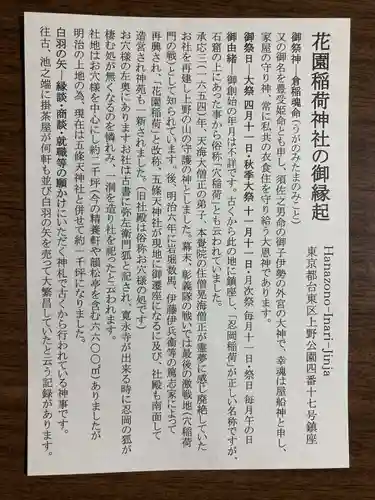 花園稲荷神社の御縁起
Hanazono-Inari-Jinja
東京都台東区上野公園四番十七号鎮座
御祭神―倉稲魂命(うがのみたまのみこと)
又の御名を豊受姫命とも申し、須佐之男命の御子伊勢の外宮の大神で、幸魂は屋船神と申し、
家屋の守り神、常に私共の衣食住を守り給う大恩神であります。
御祭日・大祭 四月十一日・秋季大祭 十一月十一日・月次祭 毎月十一日・祭日 毎月午の日
御由緒 御創始の年月は不詳です。古くから此の地に鎮座し、「忍岡稲荷」が正しい名称ですが、
石窟の上にあった事から俗称「穴稲荷」とも云われていました。
承応三(一六五四)年、天海大僧正の弟子、本覚院の住僧晃海僧正が霊夢に感じ廃絶していた
お社を再建し上野の山の守護の神としました。幕末、彰義隊の戦いでは最後の激戦地(穴稲荷
門の戦)として知られています。後、明治六年に岩堀数馬、伊藤伊兵衛等の篤志家によって
再興され、「花園稲荷」と改称、五條天神社が現地に御遷座になるに及び、社殿も南面して
造営され神苑も一新されました。(旧社殿は俗称お穴様の処です)
お穴様の左奥にありますお社は古書に弥左衛門狐と記され、寛永寺が出来る時に忍岡の狐が
棲む処が無くなるのを憐れみ、一洞を造り社を祀ったと云われます。
社地はお穴様を中心にし約二千坪(今の精養軒や韻松亭を含む六六〇〇㎡)ありましたが
明治の上地の為、現在は五條天神社と併せて約一千坪になりました。
白羽の矢―縁談・商談・就職等の願かけにいただく神札で古くから行われている神事です。
往古、池之端に掛茶屋が何軒も並び白羽の矢を売って大繁昌していたと云う記録があります。